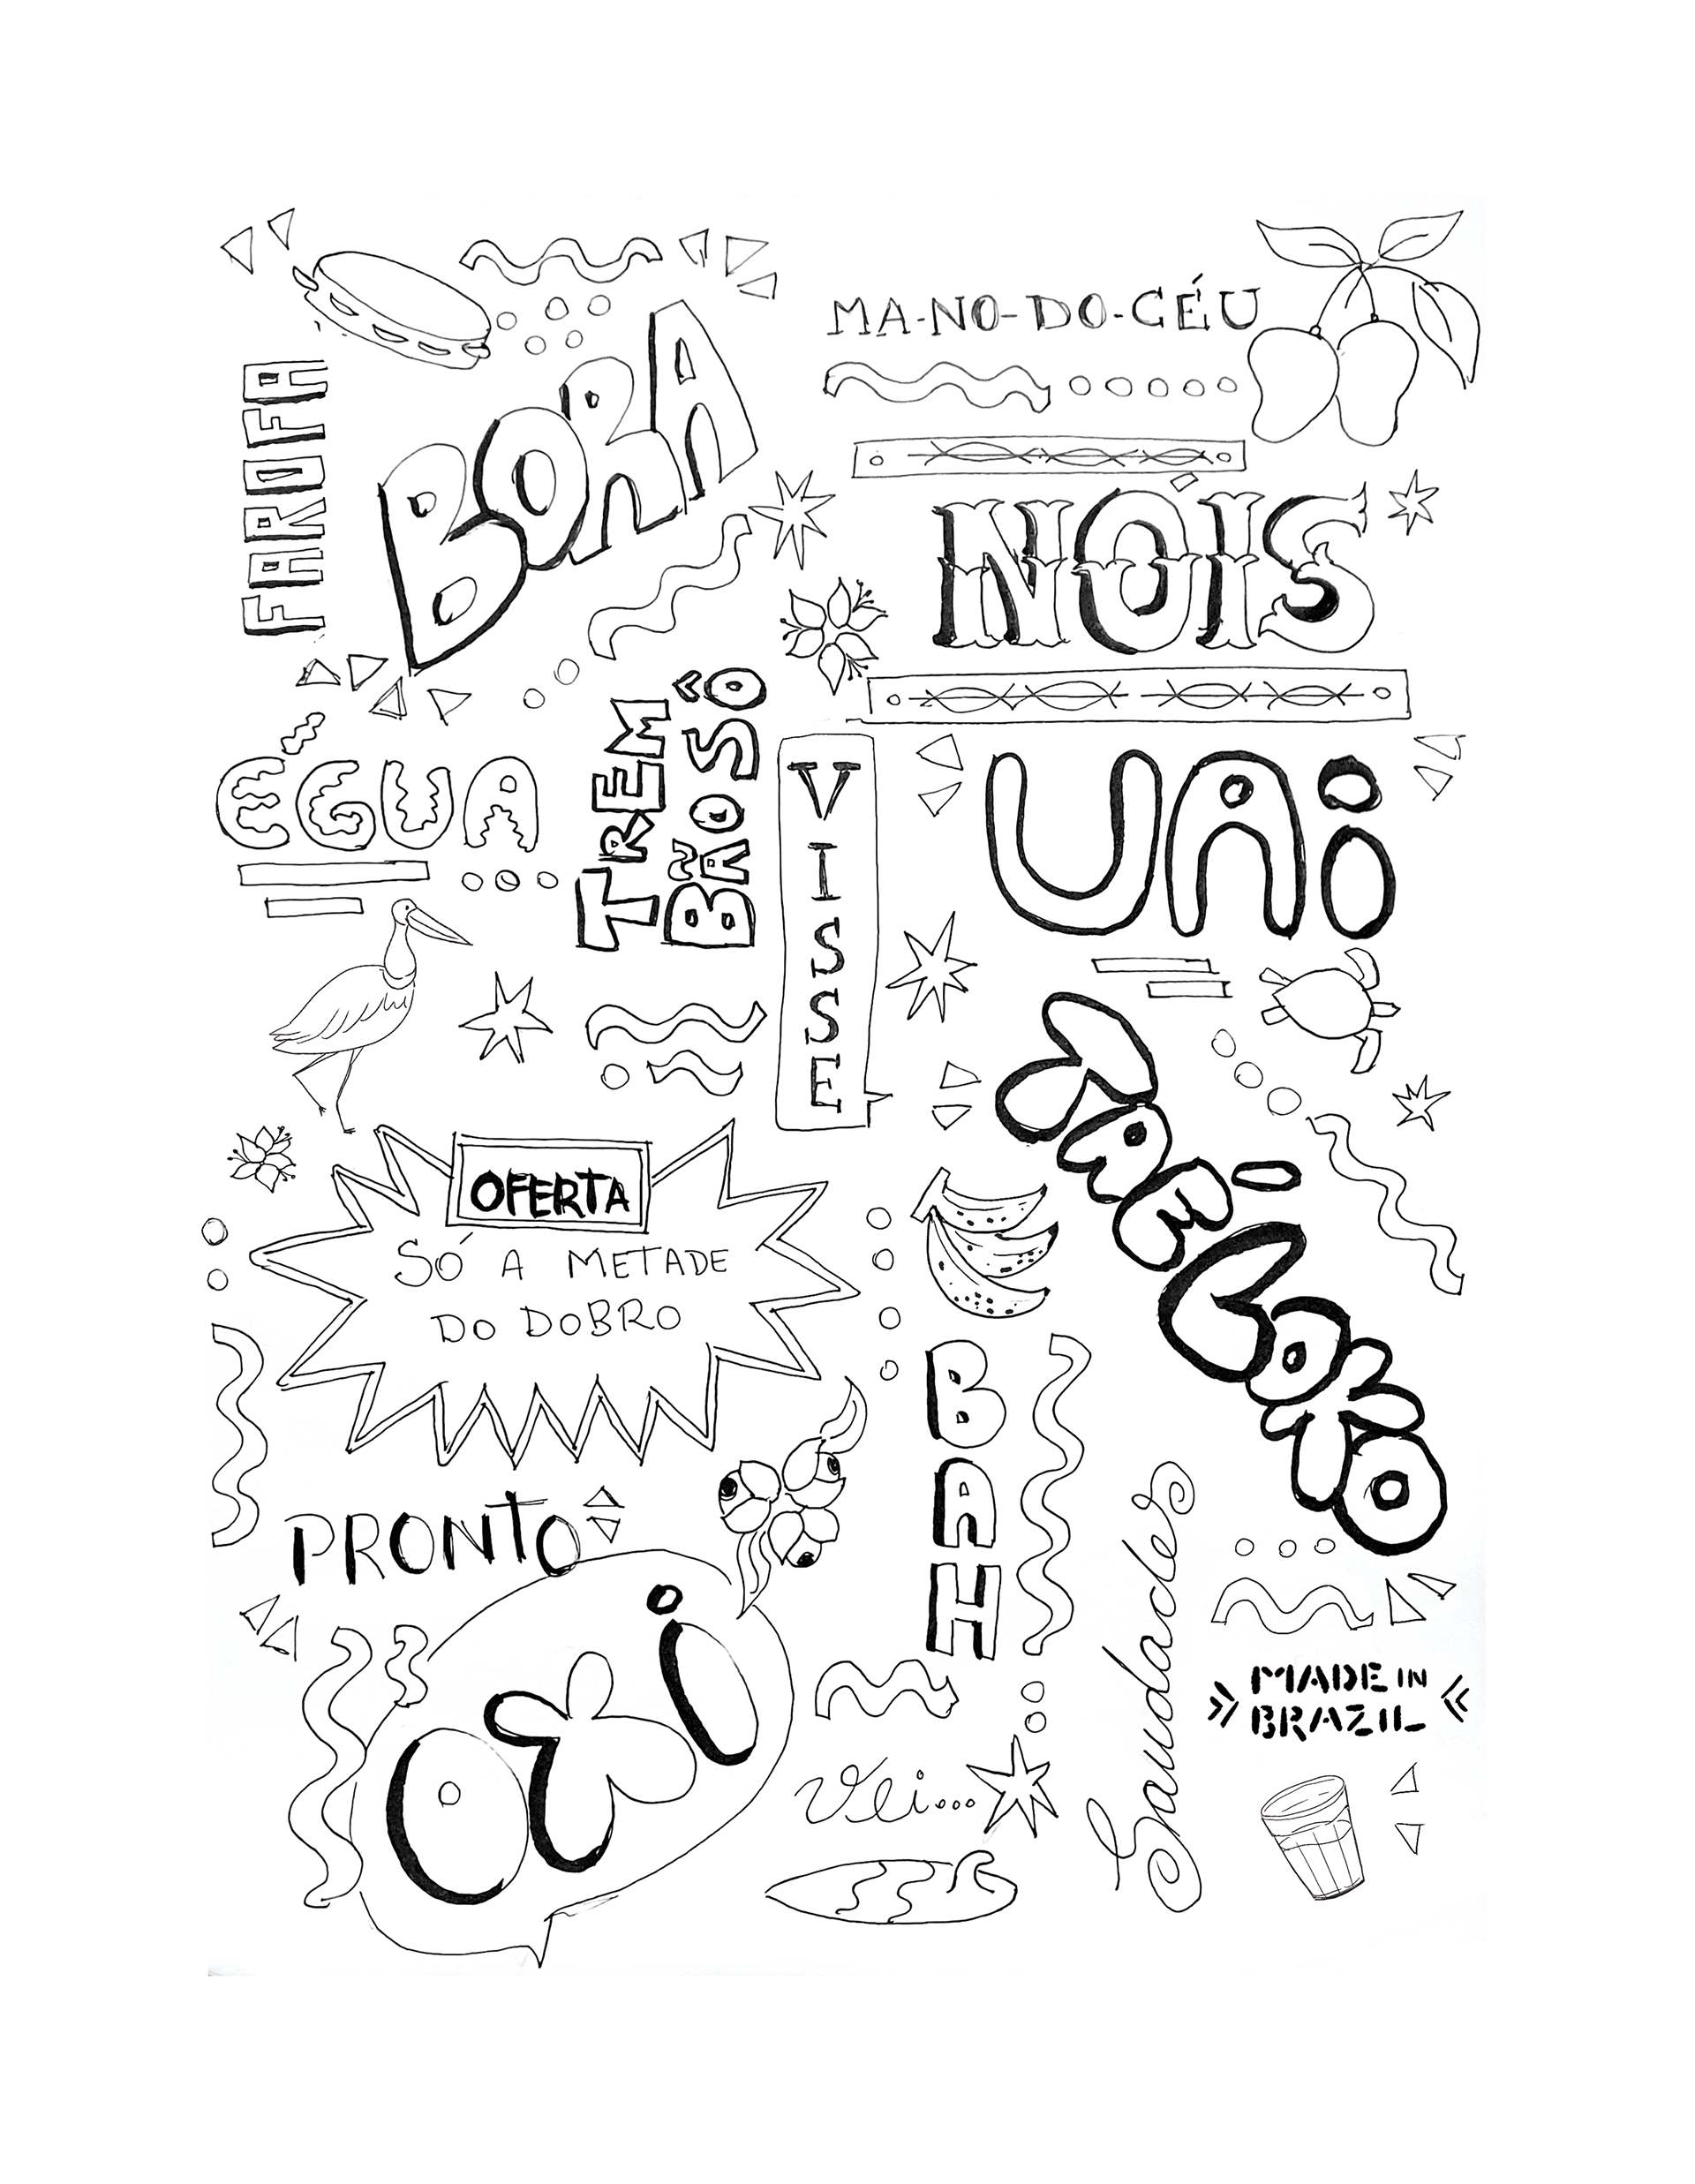 BORA
FAROFA
MA-NO-DO-CÉU
NÓIS
ÉGUA
TREM
BÃO SÔ
VISSE
UAI
TRÉ-LOKO
OFERTA
SÓ A METADE
DO DOBRO
BAH
PRONTO
OXI
Vei...
Saudades
MADE IN
BRAZIL